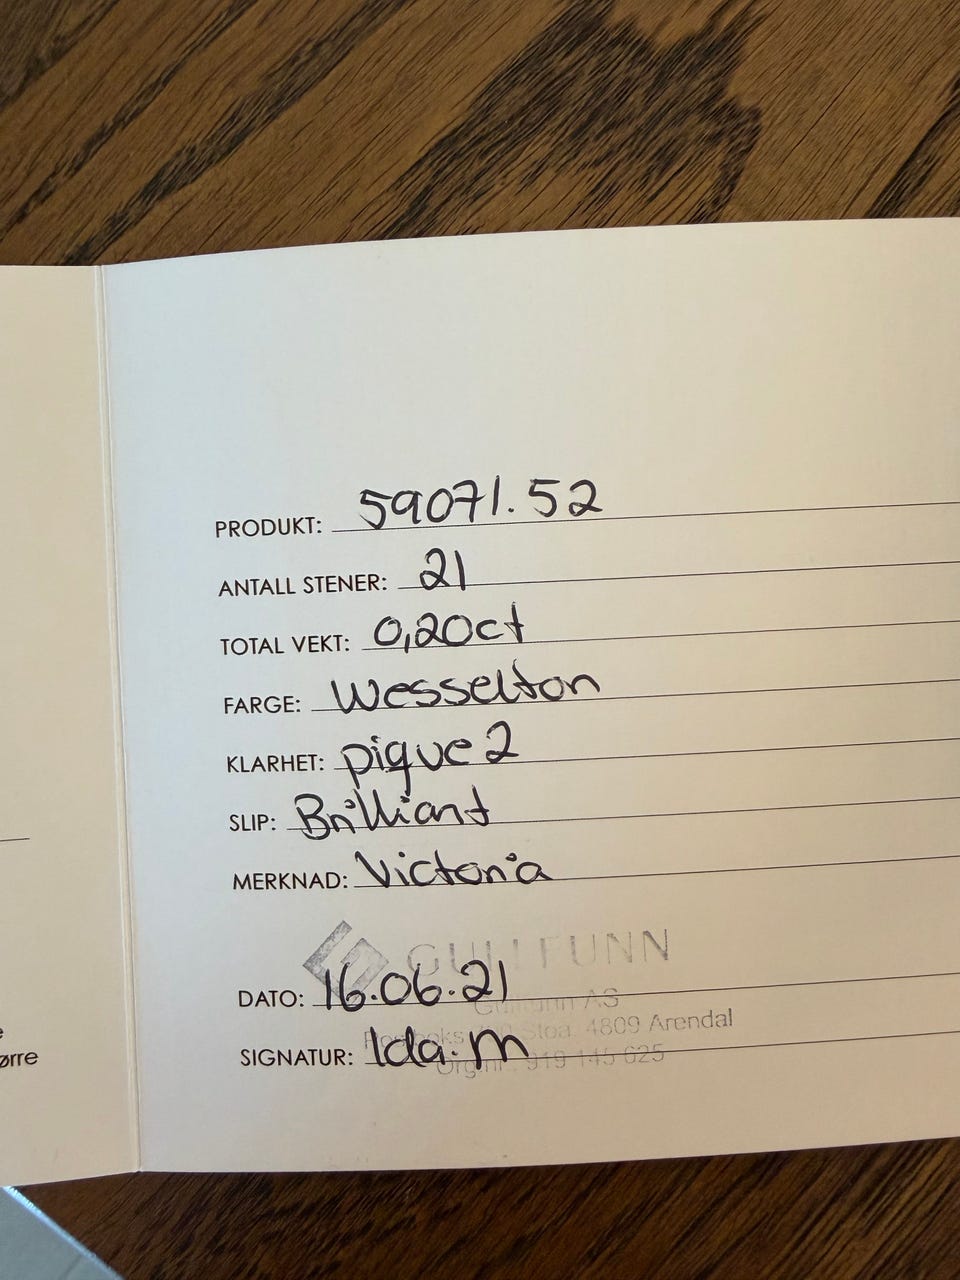 PRODUKT: 59071.52
ANTALL STENER: 21
TOTAL VEKT: 0,20ct
FARGE: Wesselton
KLARHET: pique 2
SLIP: Brilliant
MERKNAD: Victoria
GULLFUNN
DATO: 16.06.21
Gullfunn AS
Stoa. 4809 Arendal
SIGNATUR: Ida.M
Org.nr.: 919 145 625
ørre